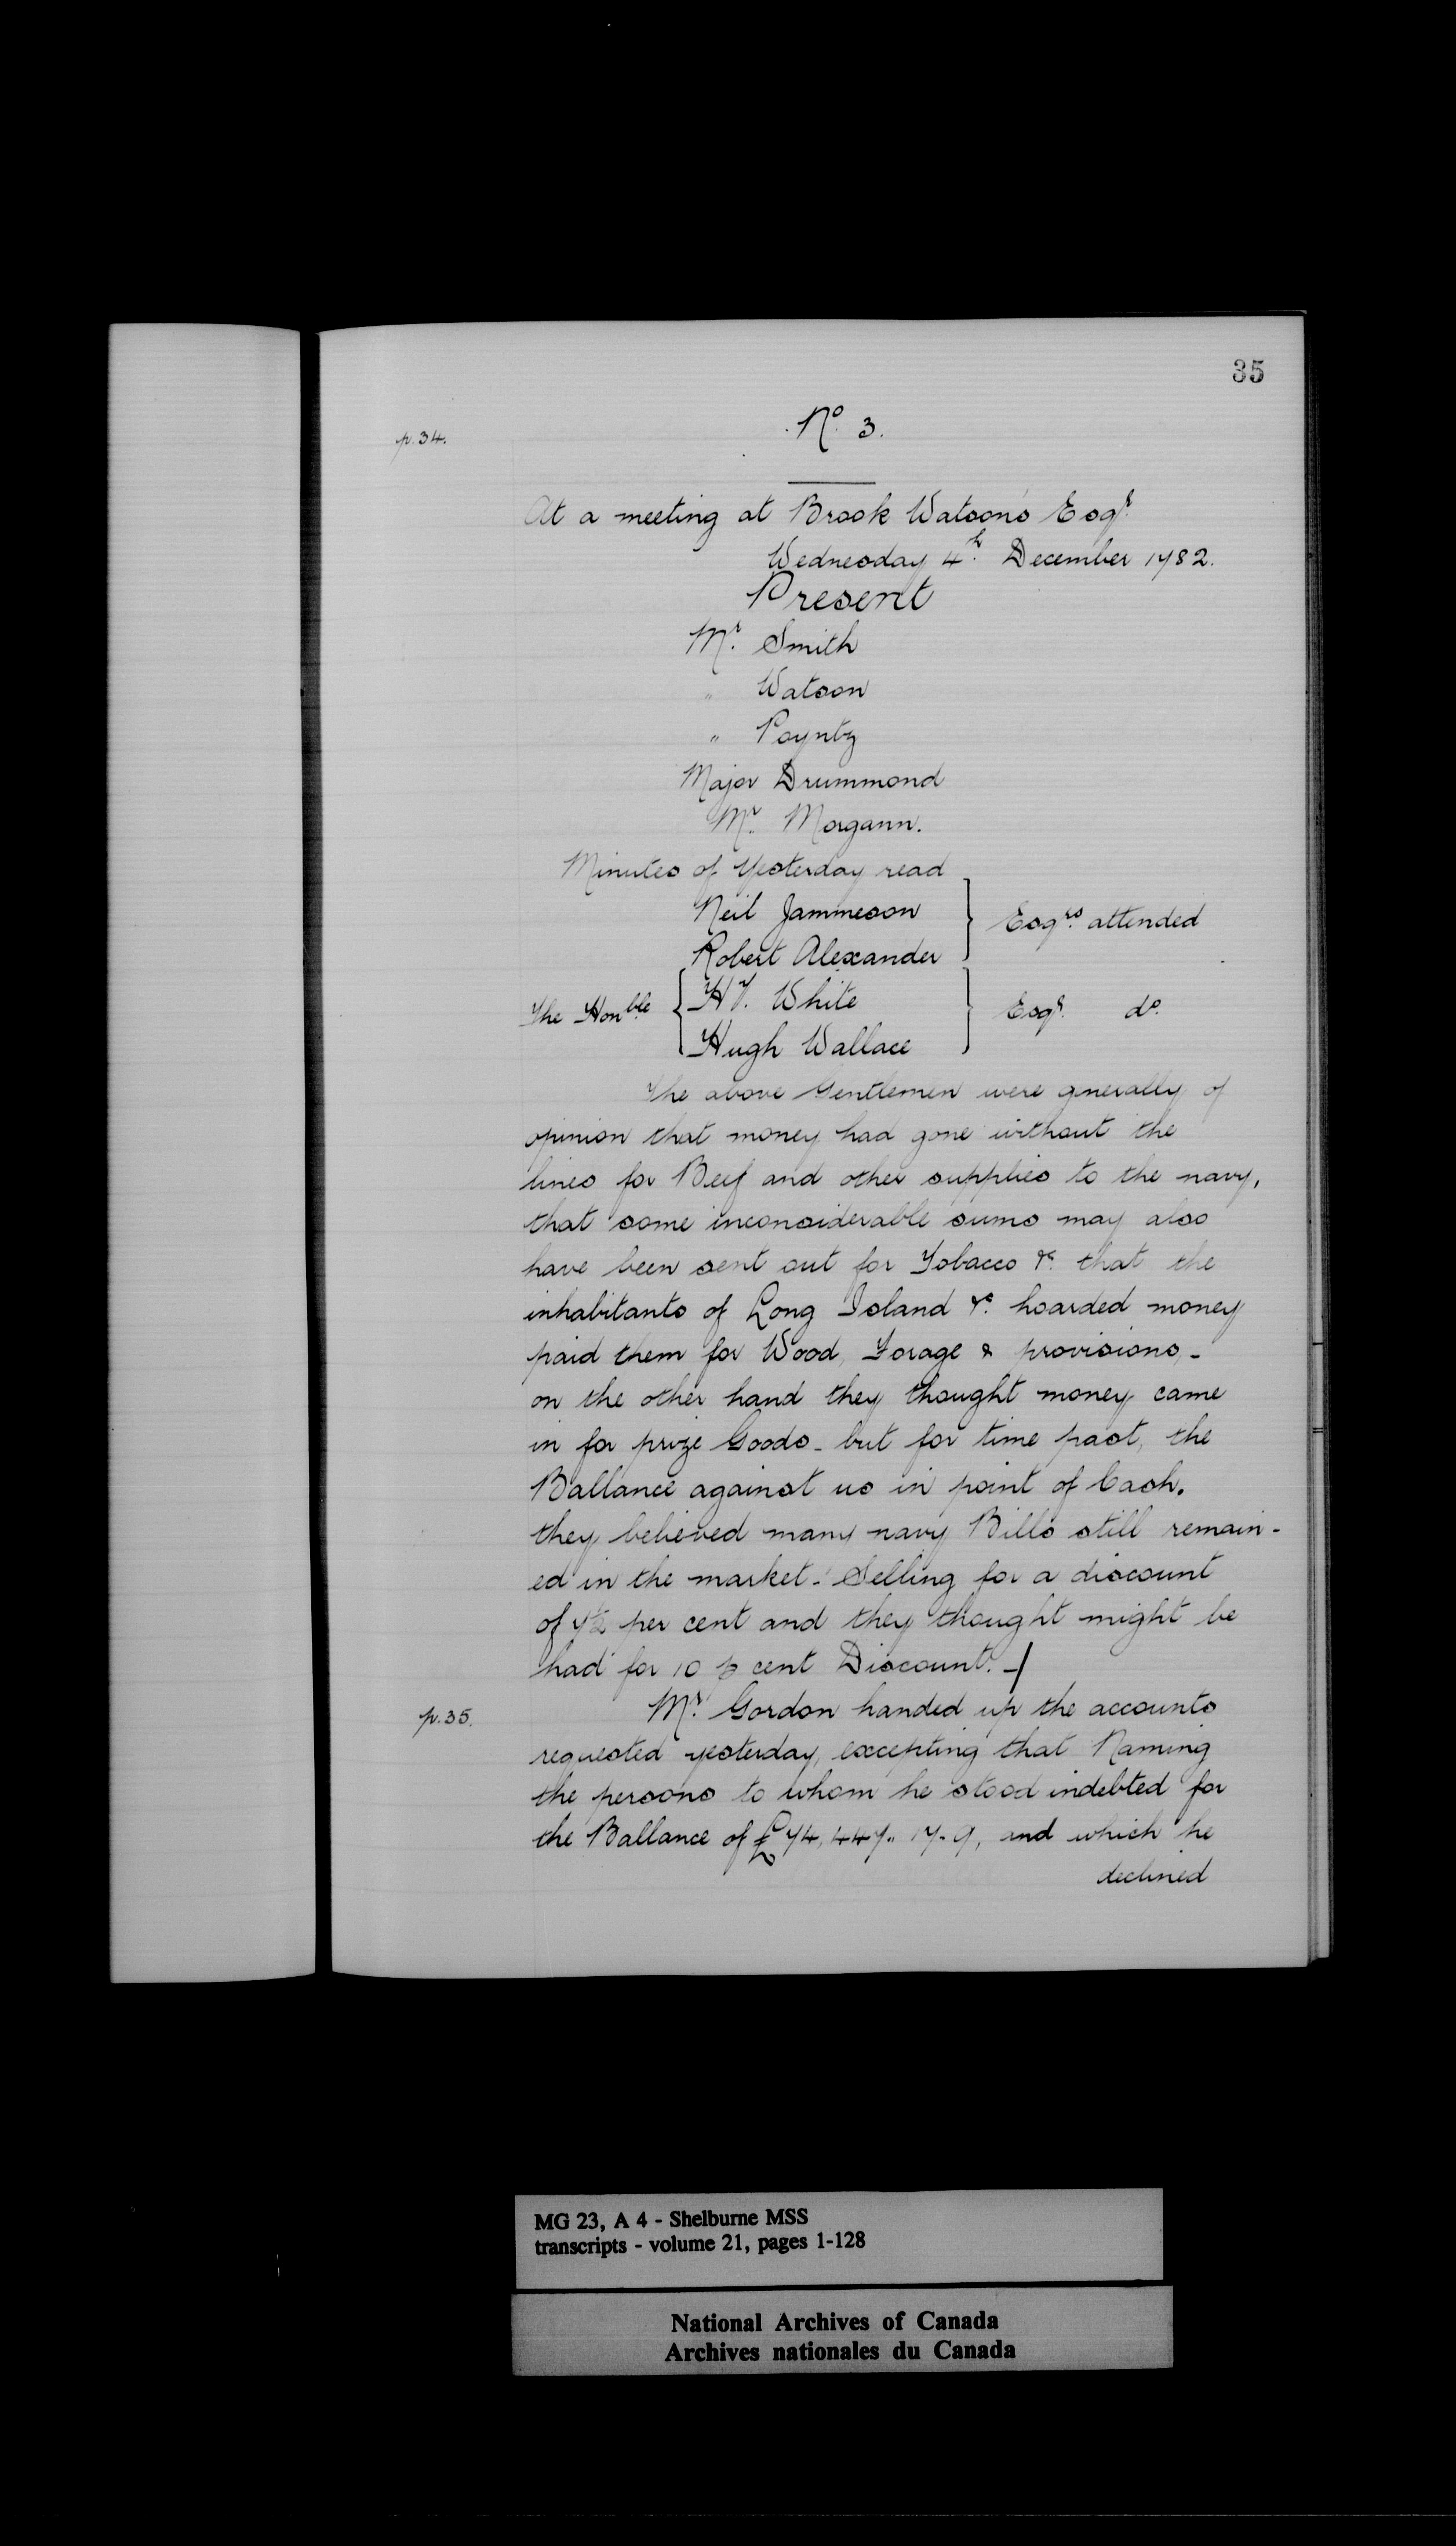 35
p. 34.
No. 3.
At a meeting at Brook Watson's Esqr.
Wednesday 4th. December 1782.
Present
Mr. Smith
" Watson
" Poyntz
Major Drummond
Mr. Morgann.
Minutes of Yesterday read
Neil Jammeson
Robert Alexander } Esqrs. attended
The Honble { H. White
Hugh Wallace } Esqr. do.
The above Gentlemen were generally of
opinion that money had gone without the
lines for Beef and other supplies to the navy,
that some inconsiderable sums may also
have been sent out for Tobacco &c. that the
inhabitants of Long Island &c. hoarded money
paid them for Wood, Forage & provisions, -
on the other hand they thought money came
in for prize Goods - but for time past, the
Ballance against us in point of Cash.
they believed many navy Bills still remain-
ed in the market - Selling for a discount
of 7½ per cent and they thought might be
had for 10 p cent Discount. -/
p. 35.
Mr. Gordon handed up the accounts
requested yesterday, excepting that Naming
the persons to whom he stood indebted for
the Ballance of £74,447 " 17 - 9, and which he
declined
MG 23, A 4 - Shelburne MSS
transcripts - volume 21, pages 1-128
National Archives of Canada
Archives nationales du Canada